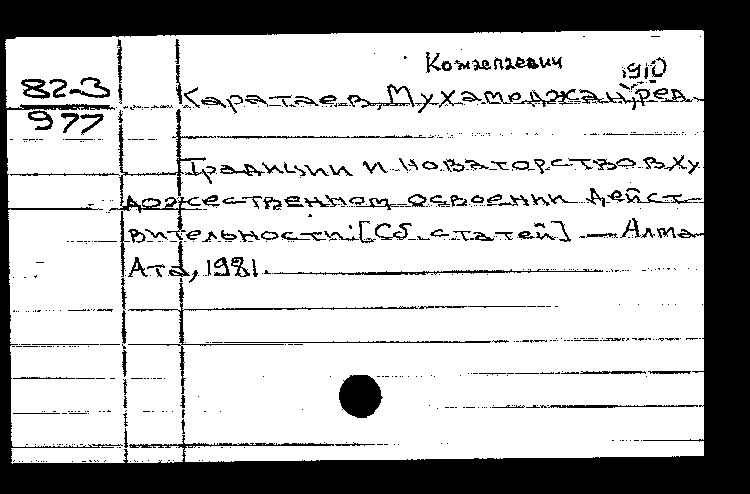 Кожгелгевич
1910
82-3
Каратаев, Мухамеджан, ред.
977
Традиции и новаторство в ху
дожественном освоении дейст-
вительности: [Сб. статей] — Алма
Ата, 1981.